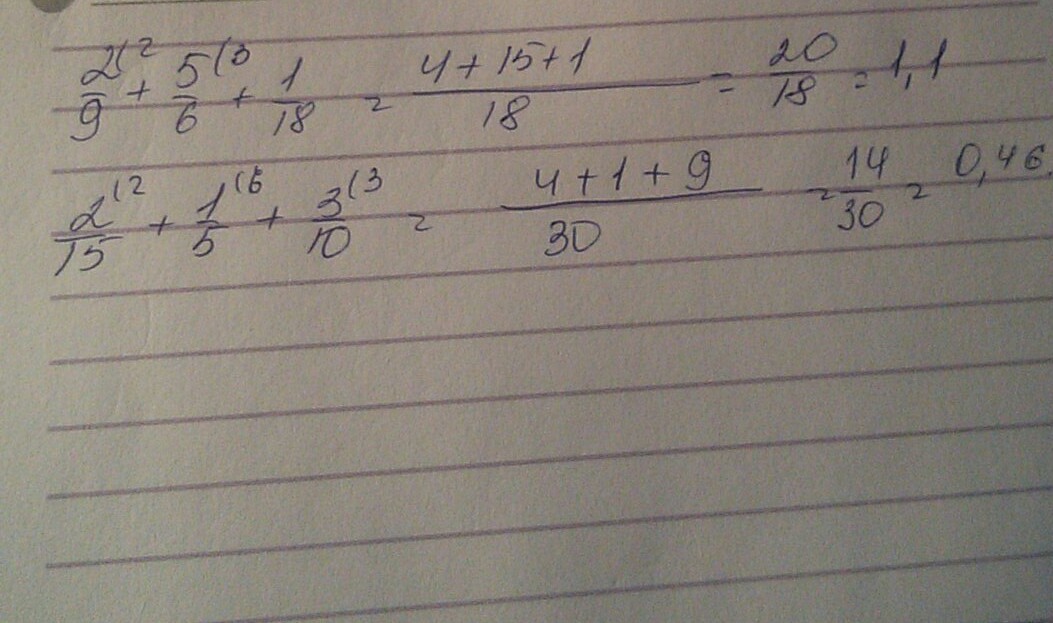 2/9 (2 + 5/6 (3 + 1/18 = (4+15+1)/18 = 20/18 = 1,1
2/15 (2 + 1/5 (6 + 3/10 (3 = (4+1+9)/30 = 14/30 = 0,46